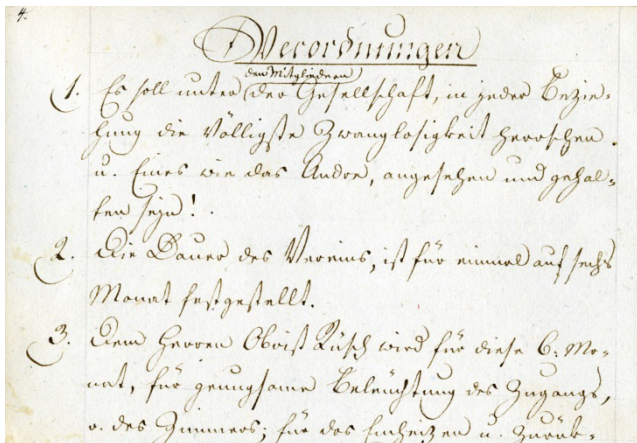 4.
Verordnungen
den Mitgliedern
1. Es soll unter der Gesellschaft, in jeder Bezie-
hung die völligste Zwanglosigkeit herrschen.
u. Eines wie das Andre, angesehen und gehal-
ten seyn!
2. Die Dauer des Vereins, ist für einmal auf sechs
Monat festgestellt.
3. Dem Herren Obrist Rüsch wird für diese 6. Mo-
nat, für genugsame Beleuchtung des Zugangs,
u. des Zimmers; für das Einheitzen u. Zurük-